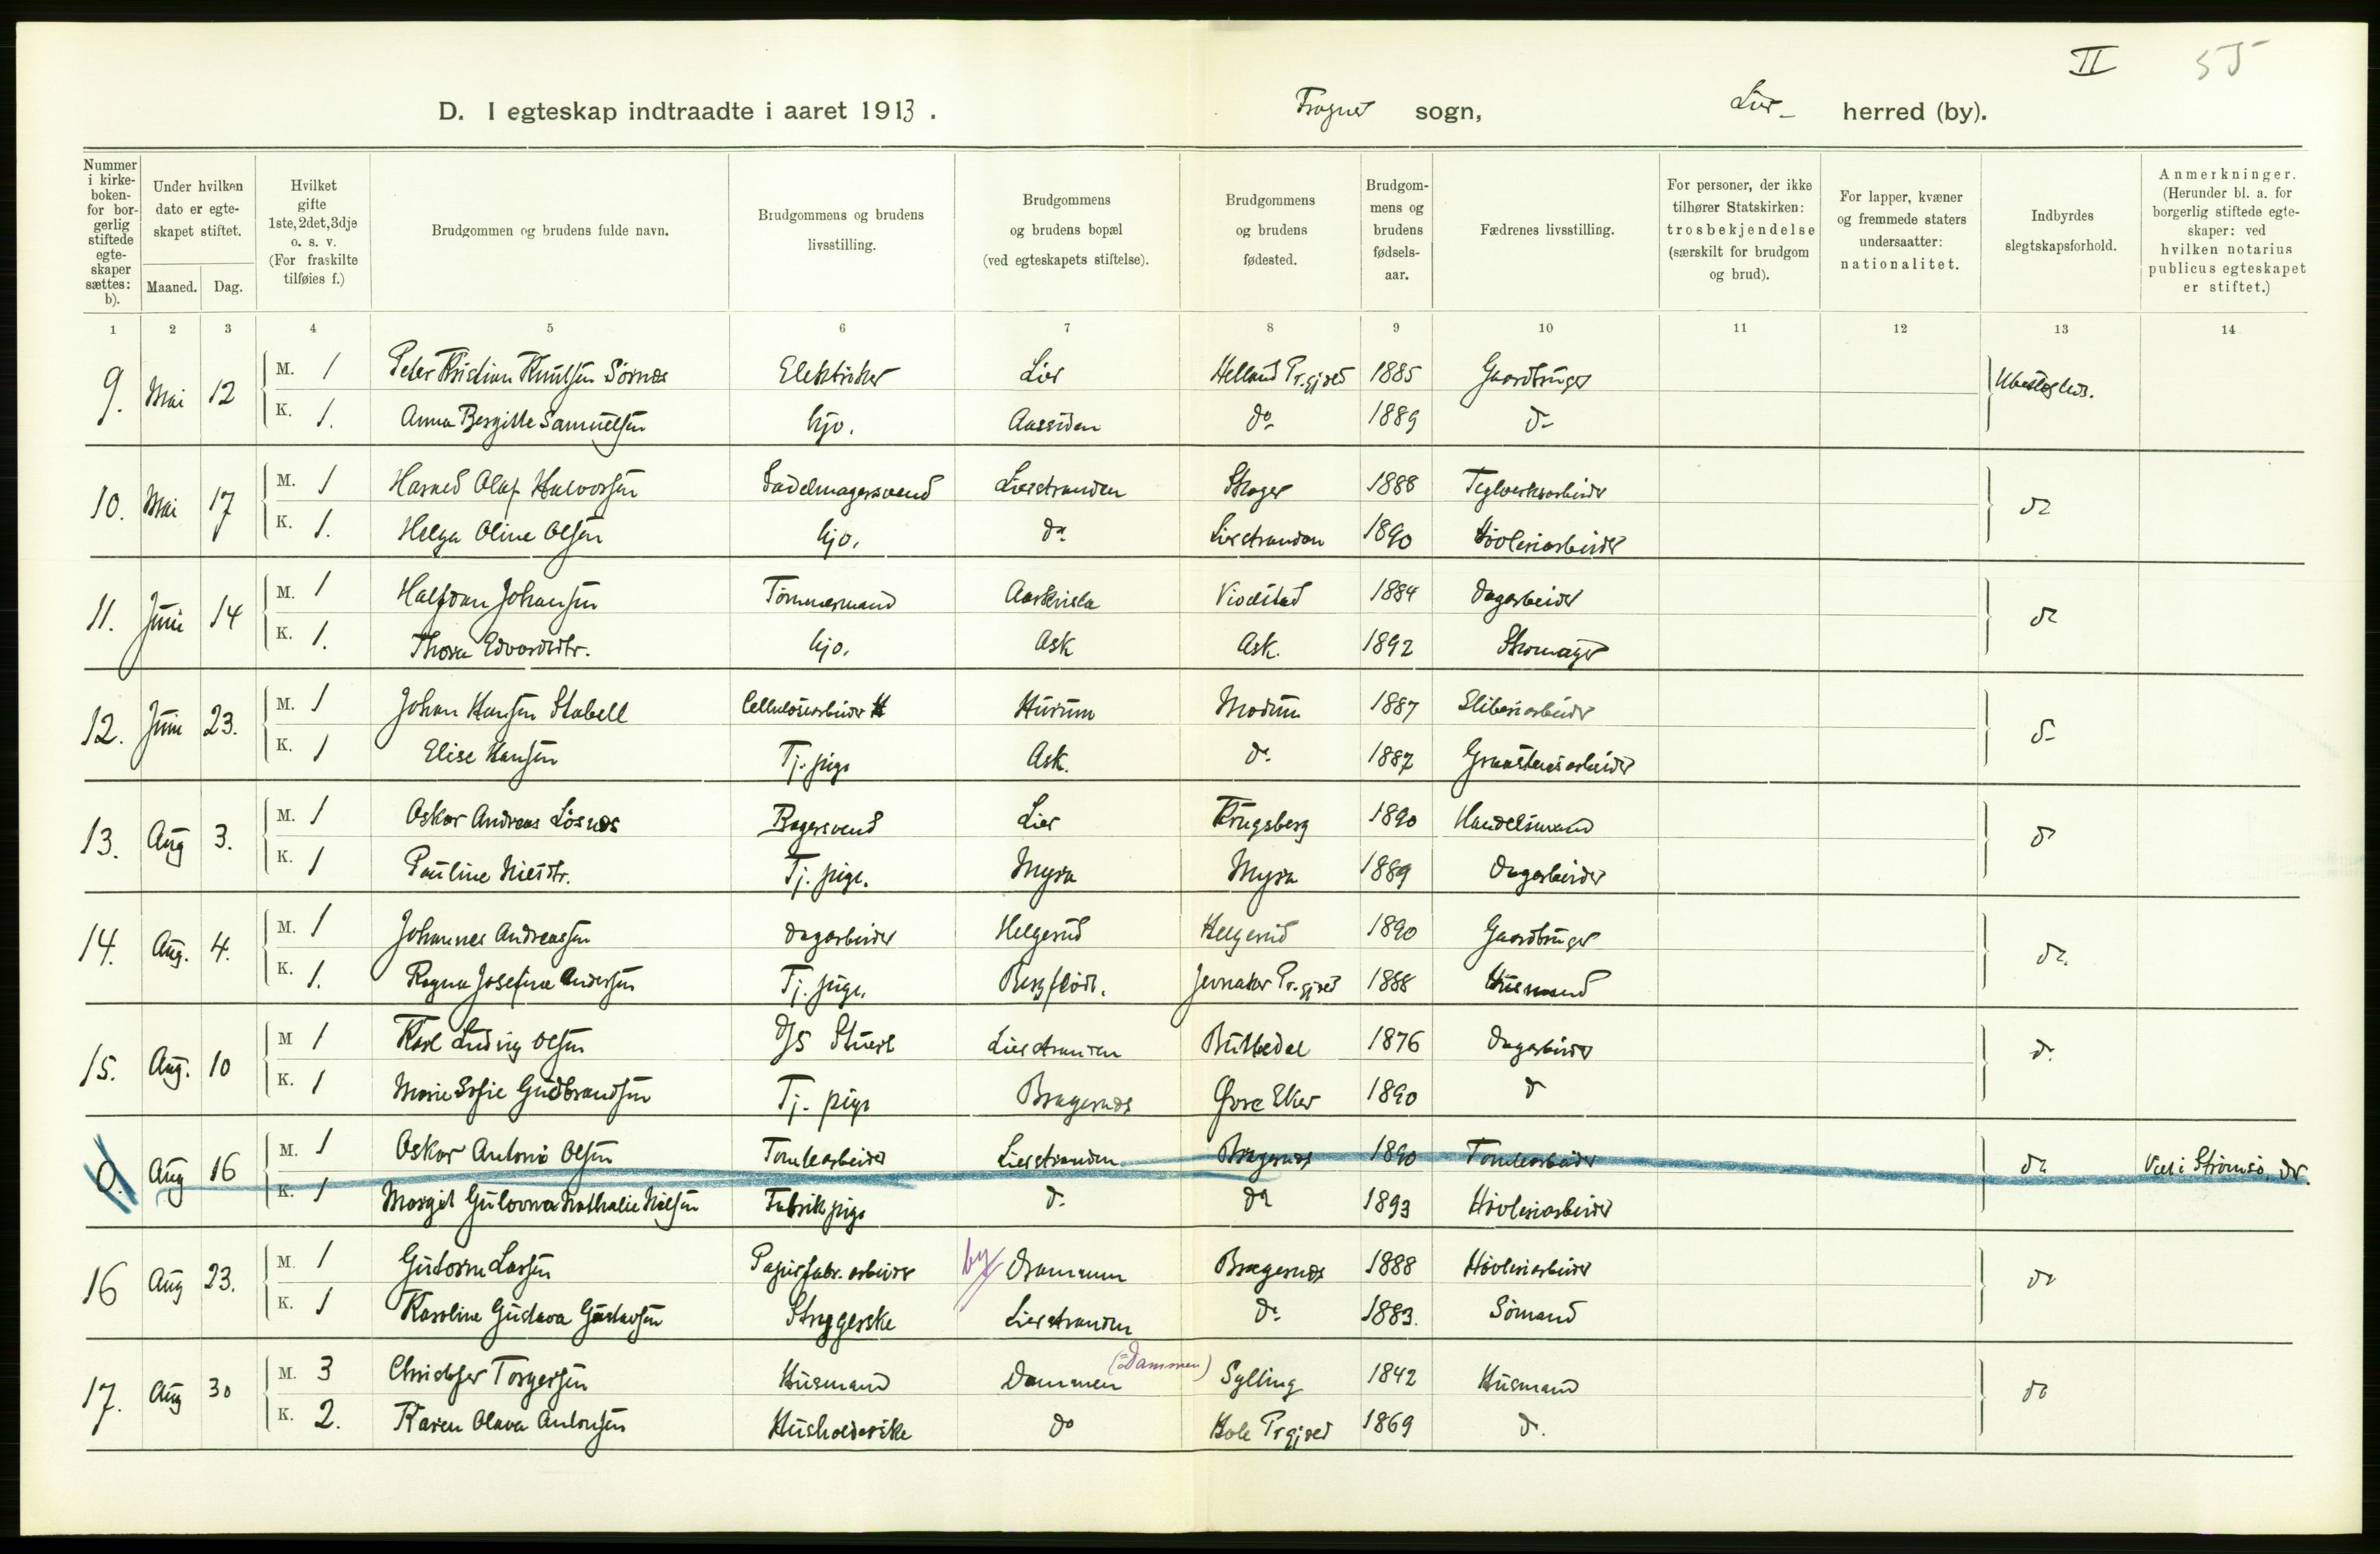 II 55
D. I egteskap indtraadte i aaret 1913. Frogner sogn, Lier herred (by).
Nummer i kirke-boken- for bor-gerlig stiftede egte-skaper sættes: b).
Under hvilken dato er egte-skapet stiftet. Maaned. Dag.
Hvilket gifte 1ste, 2det, 3dje o. s. v. (For fraskilte tilføies f.)
Brudgommen og brudens fulde navn.
Brudgommens og brudens livsstilling.
Brudgommens og brudens bopæl (ved egteskapets stiftelse).
Brudgommens og brudens fødested.
Brudgom-mens og brudens fødsels-aar.
Fædrenes livsstilling.
For personer, der ikke tilhører Statskirken: trosbekjendelse (særskilt for brudgom og brud).
For lapper, kvæner og fremmede staters undersaatter: nationalitet.
Indbyrdes slegtskapsforhold.
Anmerkninger. (Herunder bl. a. for borgerlig stiftede egte-skaper: ved hvilken notarius publicus egteskapet er stiftet.)
1 2 3 4 5 6 7 8 9 10 11 12 13 14
9. Mai 12 M. 1 Peter Kristian Knutsen Sørnes Elektriker Lier Helland Pr.gjeld 1885 Gaardbruger Ubeslegtede.
K. 1. Anna Bergitte Samuelsen hjo. Aassiden do 1889 d-
10. Mai 17 M. 1 Harald Olaf Halvorsen Sadelmagersvend Lierstranden Skoger 1888 Teglverksarbeider do
K. 1. Helga Oline Olsen hjo. do Lierstranden 1890 Høvleriarbeider
11. Juni 14 M. 1 Halfdan Johansen Tømmermand 1884 Dagarbeider do
K. 1. Thora Edvardsdtr. hjo. Ask Ask. 1892 Skomager
12. Juni 23. M. 1 Johan Hansen Stabell Cellulosearbeider Hurum Modum 1887 Sliberiarbeider d-
K. 1 Elise Hansen Tj. pige Ask. do 1887
13. Aug 3. M. 1 Oskar Andreas Løsnes Bagersvend Lier Kongsberg 1890 Handelsmand do
K. 1 Pauline Nilsdtr. Tj. pige. Myra Myra 1889 Dagarbeider
14. Aug. 4. M. 1 Johannes Andreassen Dagarbeider Helgerud Helgerud 1890 Gaardbruger do.
K. 1. Ragna Josefine Andersen Tj. pige. Bergflødt. Jevnaker Pr.gjeld 1888 Husmand
15. Aug. 10 M 1 Karl Ludvig Olsen D/S Stuert Lierstranden 1876 Dagarbeider do
K. 1 Marie Sofie Gudbrandsen Tj. pige Bragernes Øvre Eker 1890 d
0. Aug 16 M. 1 Oskar Antonio Olsen Tomtearbeider Lierstranden Bragernes 1890 Tomtearbeider do Viet i Strømsø, Dr.
K. 1 Margit Gulovna Nathalie Nilsen Fabrikpige d. do 1893 Høvleriarbeider
16 Aug 23. M. 1 Guttorm Larsen Papirfabr. arbeider by Drammen Bragernes 1888 Høvleriarbeider do
K. 1 Karoline Gustava Gustavsen Strygerske Lierstranden do 1883. Sømand
(=Dammen)
17. Aug 30 M. 3 Christofer Torgersen Husmand Dammen Sylling 1842 Husmand do
K. 2. Karen Olava Antonsen Husholderske do Hole Prgjeld 1869 d.